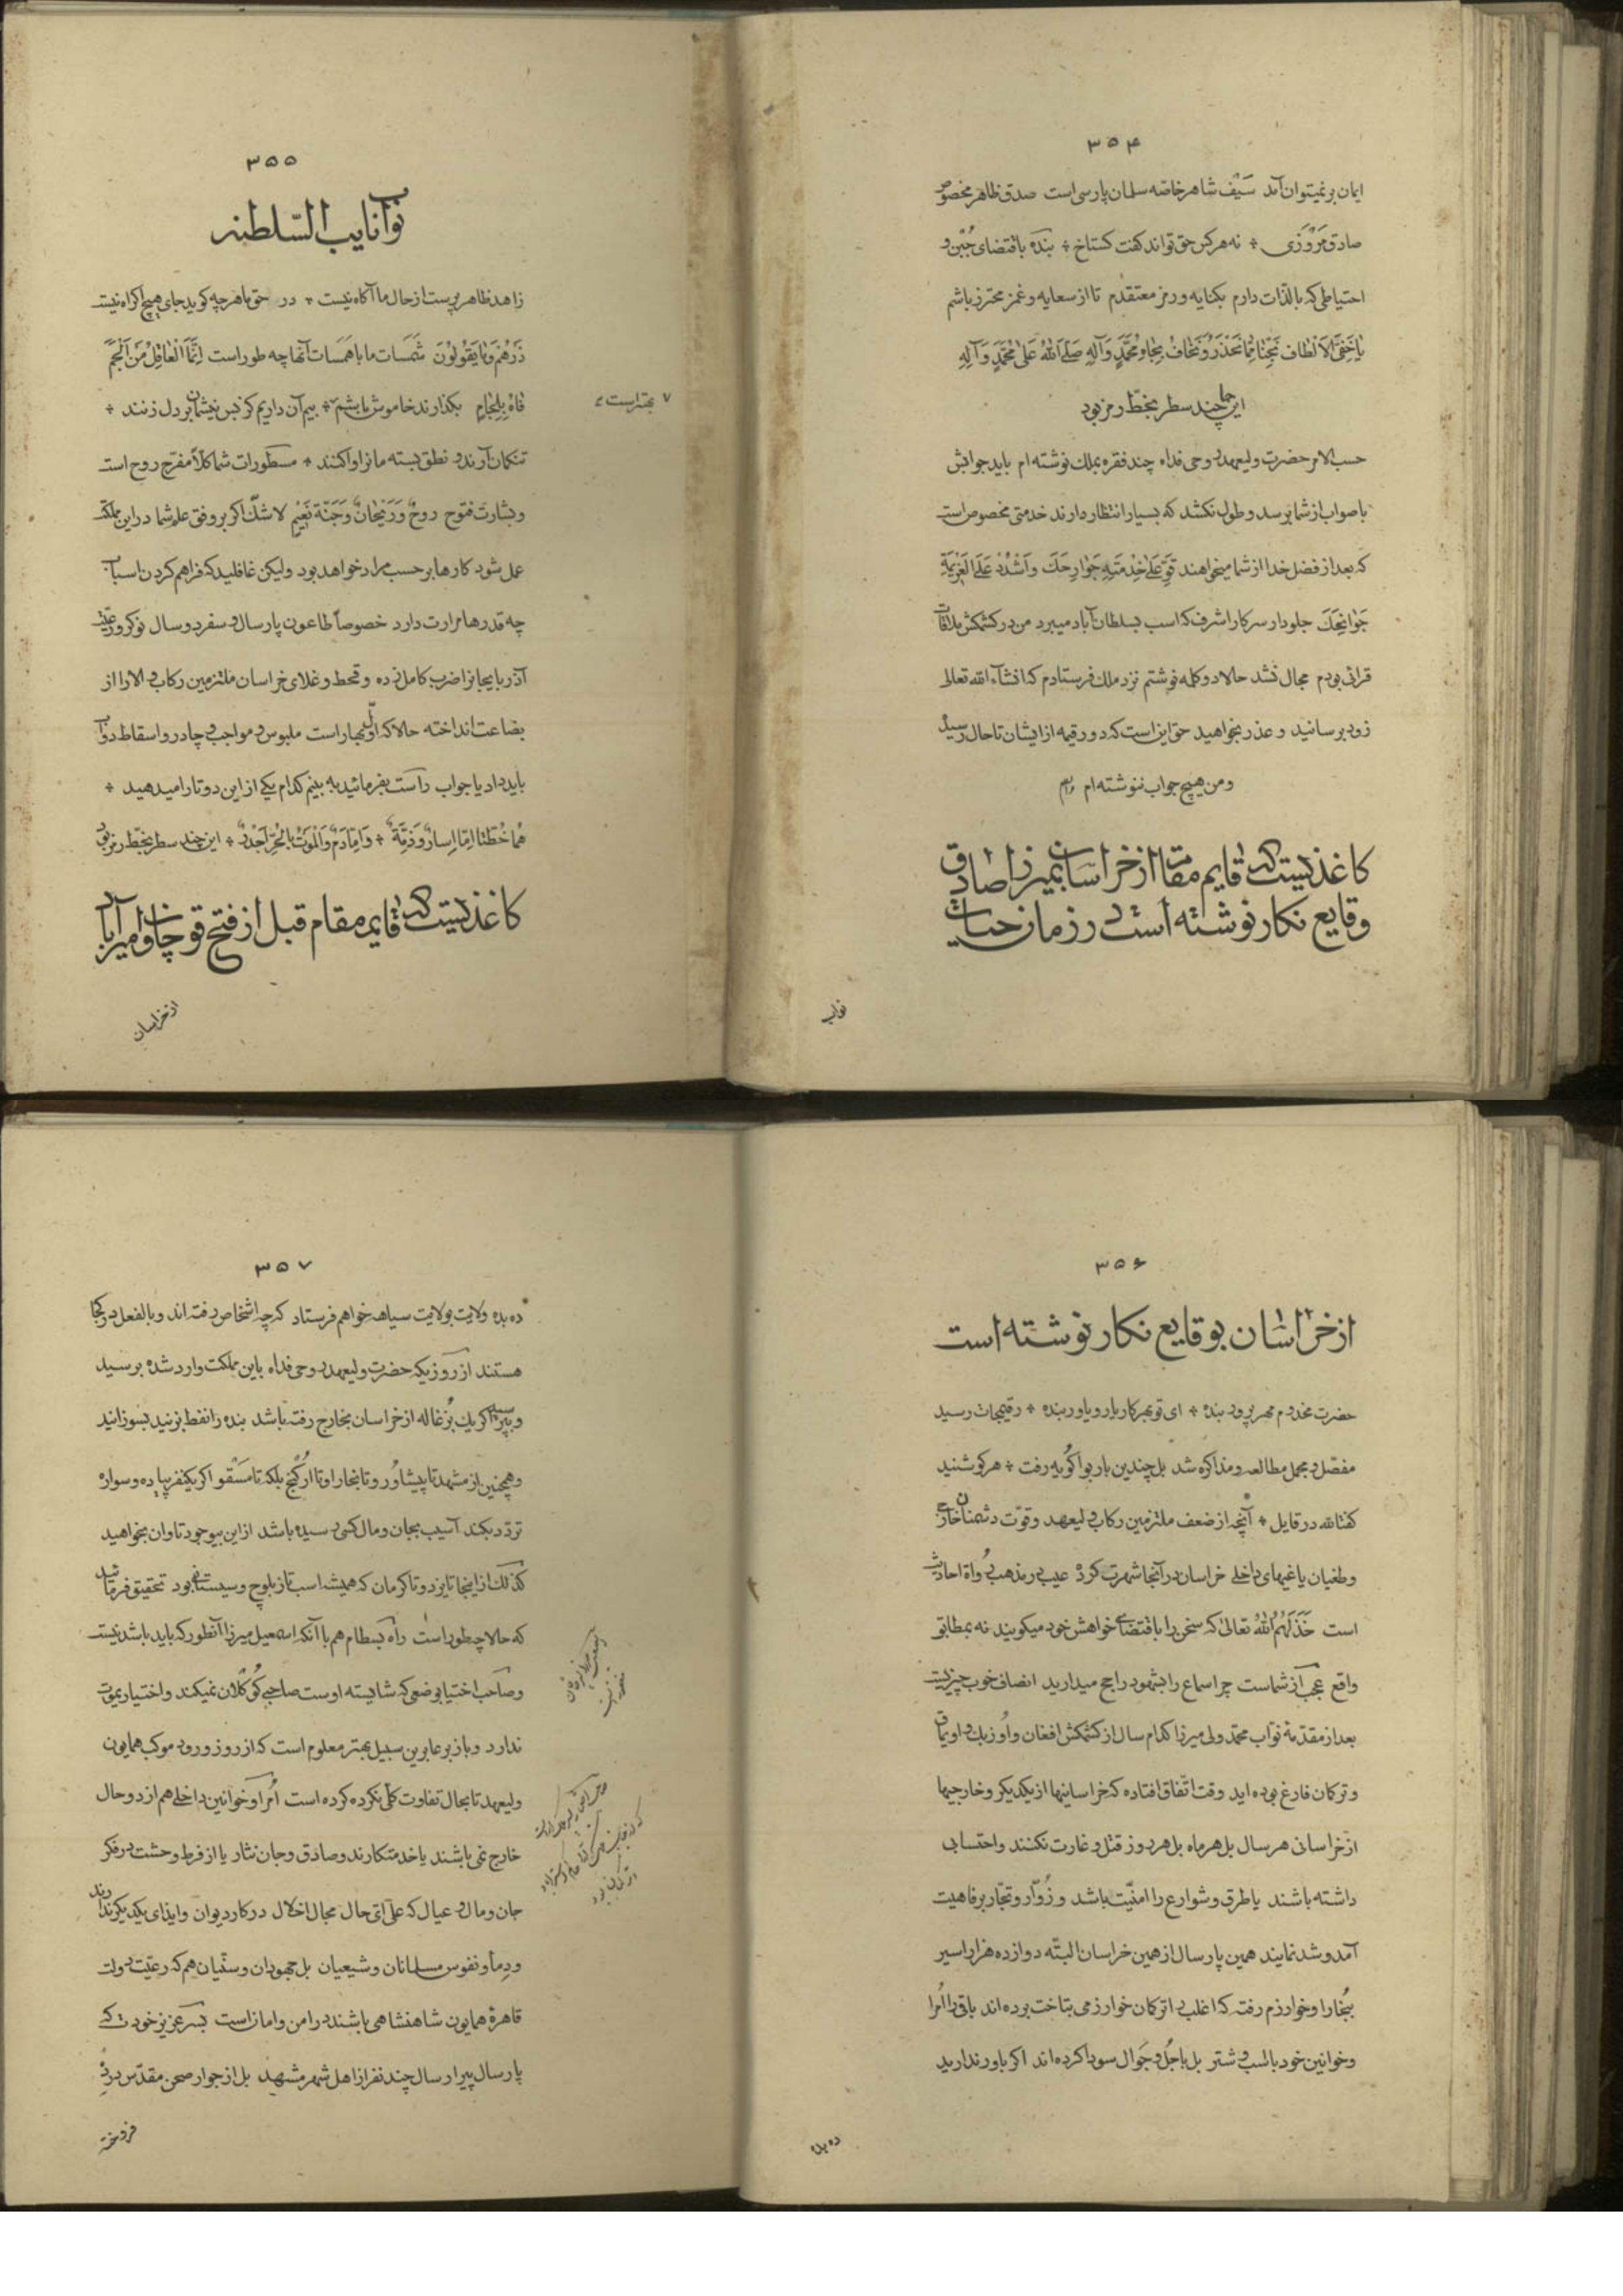 ۳۵۴
ایمان بر نمیتوان آمد سَیْف شاهر خاصّه سلمان پارسی است صدق ظاهر مخصوص
صادق مَرْوَزی ٭ نه هر کس حق تواند گفت گستاخ ٭ بنده باقتضای جُبْن و
احتیاطی که بالذّات دارم بکنایه و رمز معتقدم تا از سعایه و غمز محترز باشم
یا خَفِیَّ الاَلْطاف نَجِّنا مِمّا نَحْذَرُ وَ نَخافُ بِجاهِ مُحَمَّدٍ وَ آلِهِ صَلَّی اللّٰهُ عَلیٰ مُحَمَّدٍ وَ آلِهِ
این چند سطر بخطّ رمز بود
حسب الامر حضرت ولیعهد روحی فداه چند فقره بملک نوشته ام باید جوابش
باصواب از شما برسد و طول نکشد که بسیار انتظار دارند خدمتی مخصوص است
که بعد از فضل خدا از شما میخواهند قَوِّ عَلیٰ خِدْمَتِهِ جَوارِحَکَ وَ اشْدُدْ عَلَی الْعَزیمَةِ
جَوانِحَکَ جلودار سرکار اشرف که اسب بسلطان آباد میبرد من در کشمکش ملاقات
قرائی بودم مجال نشد حالا دو کلمه نوشتم نزد ملک فرستادم که انشآء الله تعالی
زود برسانید و عذر بخواهید حق این است که دو رقیمه از ایشان تا حال رسید
و من هیچ جواب ننوشته ام
کاغذیست که قایم مقام از خراسان بمیرزا صادق
وقایع نگار نوشته است در زمان حیات
نواب
۳۵۵
نوآب نایب السّلطنه
زاهد ظاهر پرست از حال ما آگاه نیست ٭ در حق ما هر چه گوید جای هیچ اکراه نیست
ذَرْهُمْ وَ ما یَقُولُونَ شَمَسات ما با هَمَسات آنها چه طور است اِنَّمَا الْعاقِلُ مَنْ اَلْجَمَ
فاهُ بِلِجامٍ بگذارند خاموش باشم ٭ بیم آن داریم کز بس نیشمان بر دل زنند ٭
۷ بهتر است
تنگمان آرند و نطق بسته ما را وا کنند ٭ مسطورات شما کلاًّ مفرّح روح است
و بشارت فتوح روحٌ وَ رَیْحانٌ وَ جَنَّةُ نَعیْمٍ لا شکّ اگر بر وفق علم شما در این مملکت
عمل شود کارها بر حسب مراد خواهد بود ولیکن غافلید که فراهم کردن اسباب
چه قدرها مرارت دارد خصوصاً طاعون پارسال و سفر دو سال نوکر و رعیّت
آذربایجانرا ضرب کامل زده و قحط و غلای خراسان ملتزمین رکاب والا را از
بضاعت انداخته حالا که اوّل بهار است ملبوس و مواجب و چادر و اسقاط دوابّ
باید داد یا جواب راست بفرمائید به بینم کدام یکی از این دو تا را میدهید ٭
هُما خُطَّتا اِمّا اِسارٌ وَ ذِمَّةٌ ٭ وَ اِمّا دَمٌ وَ الْمَوْتُ بِالْحُرِّ اَجْدَرُ ٭ این چند سطر بخطّ رمز بود
کاغذیست که قایم مقام قبل از فتح قوچان و امیرآباد
از خراسان
۳۵۶
از خراسان بوقایع نگار نوشته است
حضرت مخدوم مهر پرور بنده ٭ ای تو بهر کار یار و یاور بنده ٭ رقیمجات رسید
مفصّل و مجمل مطالعه و مذاکره شد بل چندین بار بواگُویه رفت ٭ هر که شنید
گفتا لله در قایل ٭ آنچه از ضعف ملتزمین رکاب ولیعهد و قوّت دشمنان خارج
و طغیان یاغیهای داخلی خراسان در آنجا شهرت کرده عیب در مذهب رُواة احادیث
است خَذَلَهُمُ اللّٰهُ تعالیٰ که سخن را باقتضای خواهش خود میگویند نه بمطابق
واقع عجب از شماست چرا سماع را بشهود راجح میدارید انصاف خوب چیزیست
بعد از مقدّمهٔ نوّاب محمّد ولی میرزا کدام سال از کشمکش افغان و اُوزبک و اویماق
و ترکمان فارغ بوده اید وقت اتّفاق افتاده که خراسانیها از یکدیگر و خارجیها
از خراسانی هر سال بل هر ماه بل هر روز قتل و غارت نکنند و احتسابی
داشته باشند یا طرق و شوارع را امنیّت باشد و زُوّار و تجّار برفاهیت
آمد و شد نمایند همین پارسال از همین خراسان البتّه دوازده هزار اسیر
ببُخارا و خوارزم رفته که اغلب را ترکمان خوارزمی بتاخت برده اند باقی را اُمرا
و خوانین خود باسب و شتر بل با جُل و جَوال سودا کرده اند اگر باور ندارید
ده بده
۳۵۷
ده بده ولایت بولایت سیاهه خواهم فرستاد که چه اشخاص رفته اند و بالفعل در کجا
هستند از روزیکه حضرت ولیعهد روحی فداه باین مملکت وارد شده برسید
و بپرسید اگر یک بُزغاله از خراسان بخارج رفته باشد بنده را نفط بزنید بسوزانید
و همچنین از مشهد تا پیشاوُر و تا بخارا و تا اُرْکَنج بلکه تا مَسْقو اگر یکنفر پیاده و سواره
تردّد بکند آسیب بجان و مال کسی رسیده باشد از این بیوجود تاوان بخواهید
کذلک از اینجا تا یزد و تا کرمان که همیشه اسب تاز بلوچ و سیستانی بود تحقیق فرمائید
که حالا چطور است راه بسطام هم با آنکه اسمعیل میرزا آنطور که باید باشد نیست
و صاحب اختیار بوضعی که شایسته اوست صاحبی کُوکْلان نمیکند و اختیار یموت
ندارد و باز بر عابرین سبیل بهتر معلوم است که از روز ورود موکب همایون
ولیعهد تا بحال تفاوت کلّی نکرده کرده است اُمرآ و خوانین داخلی هم از دو حال
خارج نمی باشند یا خدمتکارند و صادق و جان نثار یا از فرط وحشت در فکر
جان و مال و عیال که علی ایّ حال مجال اخلال در کار دیوان و ایذای یکدیگر ندارند
و دِمآء و نفوس مسلمانان و شیعیان بل جهودان و سنّیان هم که رعیّت دولت
قاهرهٔ همایون شاهنشاهی باشند در امن و امان است بسر عزیز خودت که
پارسال پیرارسال چند نفر از اهل شهر مشهد بل از جوار صحن مقدّس دزدیده
فروخته